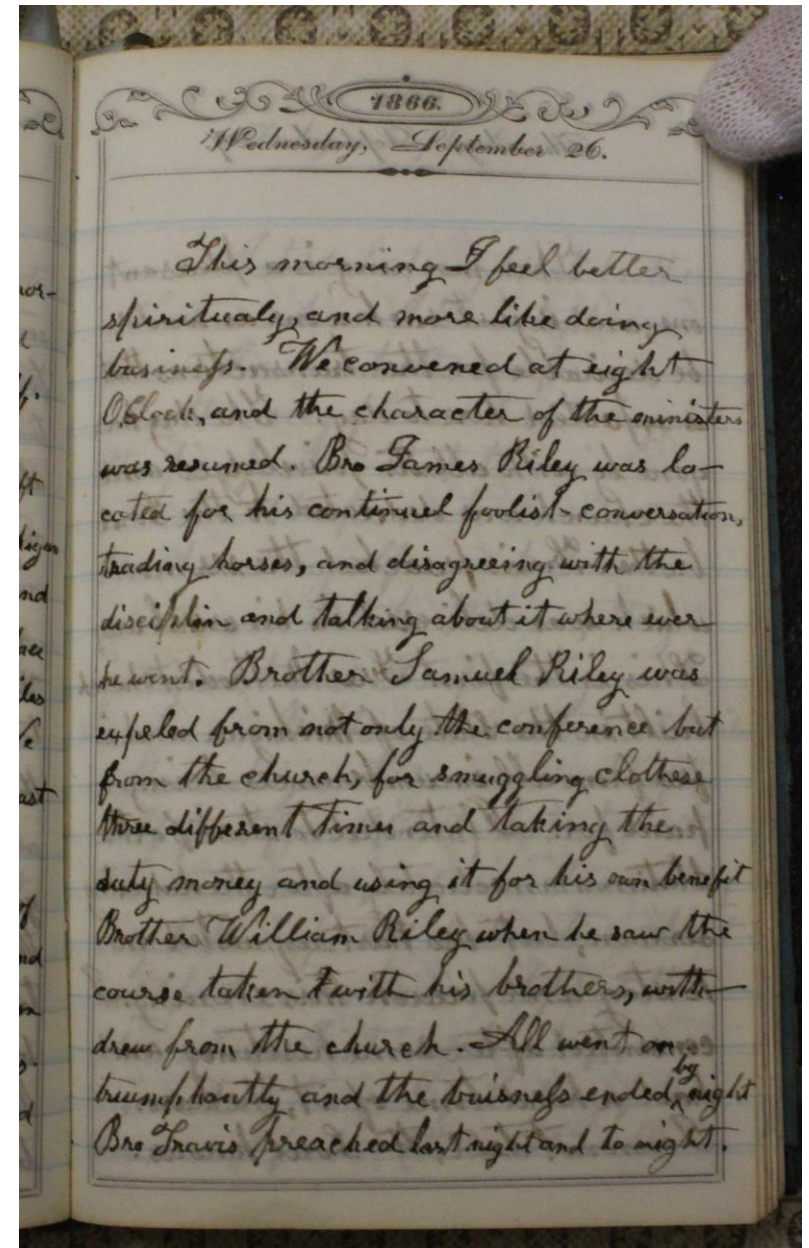 1866.
Wednesday, September 26.
This morning I feel better
spiritualy, and more like doing
business. We convened at eight
O,Clock, and the character of the ministers
was resumed. Bro James Riley was lo-
cated for his continuel foolish conversation,
trading horses, and disagreeing with the
disciplin and talking about it where ever
he went. Brother Samuel Riley was
expeled from not only the conference but
from the church, for smuggling clothese
three different times and taking the
duty money and using it for his own benefit
Brother William Riley when he saw the
course taken with his brothers, with-
drew from the church. All went on
triumphantly and the buisness ended by night
Bro Travis preached last night and to night.